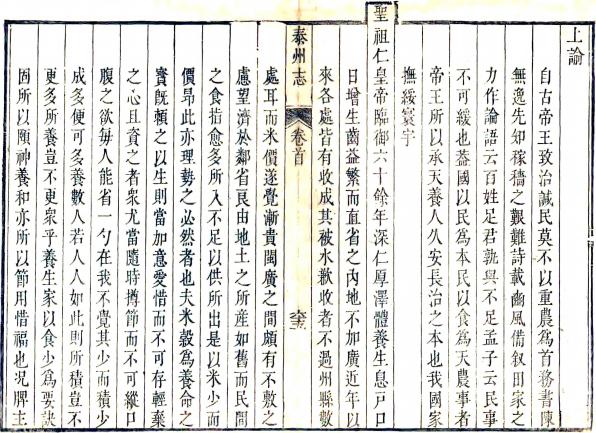 上諭
自古帝王致治諴民莫不以重農為首務書陳
無逸先知稼穡之艱難詩載豳風備叙田家之
力作論語云百姓足君孰與不足孟子云民事
不可緩也蓋國以民為本民以食為天農事者
帝王所以承天養人久安長治之本也我國家
撫綏寰宇
聖祖仁皇帝臨御六十餘年深仁厚澤體養生息戸口
日增生齒益繁而直省之内地不加廣近年以
來各處皆有收成其被水歉收者不過州縣數
泰州志
卷首
處耳而米價遂覺漸貴閩廣之間頗有不敷之
慮望濟於鄰省良由地土之所産如舊而民間
之食指愈多所入不足以供所出是以米少而
價昂此亦理勢之必然者也夫米穀為養命之
寳既賴之以生則當加意愛惜而不可存輕棄
之心且資之者衆尤當隨時撙節而不可縱口
腹之欲每人能省一勺在我不覺其少而積少
成多便可多養數人若人人如此則所積豈不
更多所養豈不更衆乎養生家以食少為要訣
固所以頤神養和亦所以節用惜福也况脾主